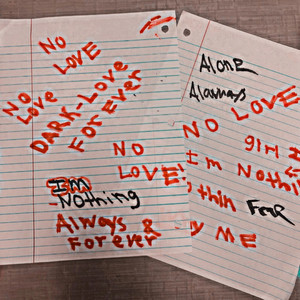 NO
LOVE
NO
Love
DARK-LOVE
FOREVER
NO
LOVE'
I'm
Nothing
Always &
Forever
Alone
Alawas
NO LOVE
girl I
I'm Nothi
thin FOR
ME